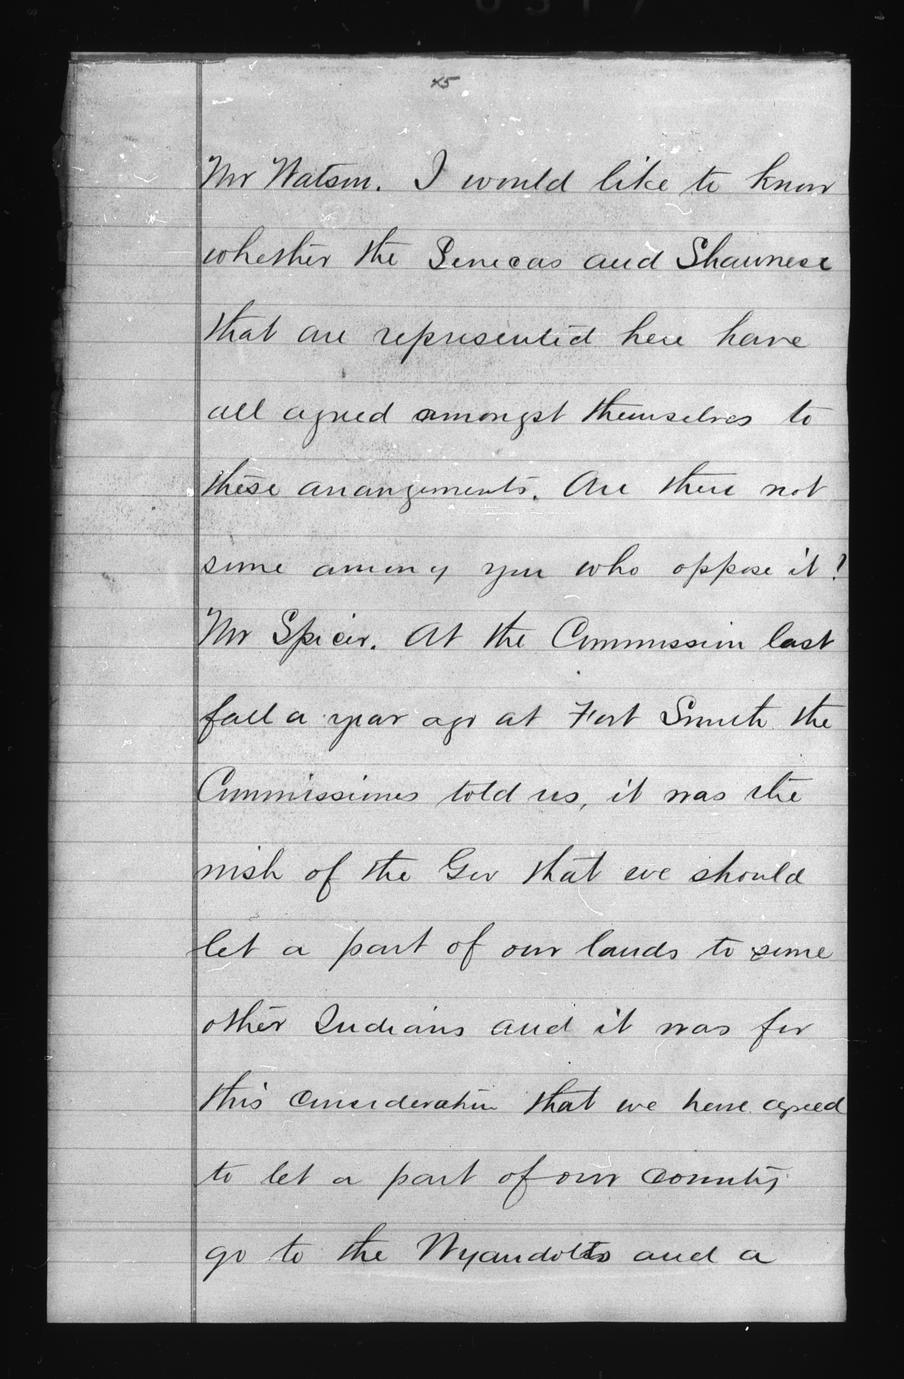 x5
Mr Watson. I would like to know
whether the Senecas and Shawnese
that are represented here have
all agreed amongst themselves to
these arrangements. Are there not
some among you who oppose it?
Mr Spicer. At the Commission last
fall a year ago at Fort Smith the
Commissioners told us, it was the
wish of the Gov that we should
let a part of our lands to some
other Indians and it was for
this consideration that we have agreed
to let a part of our country
go to the Wyandotts and a